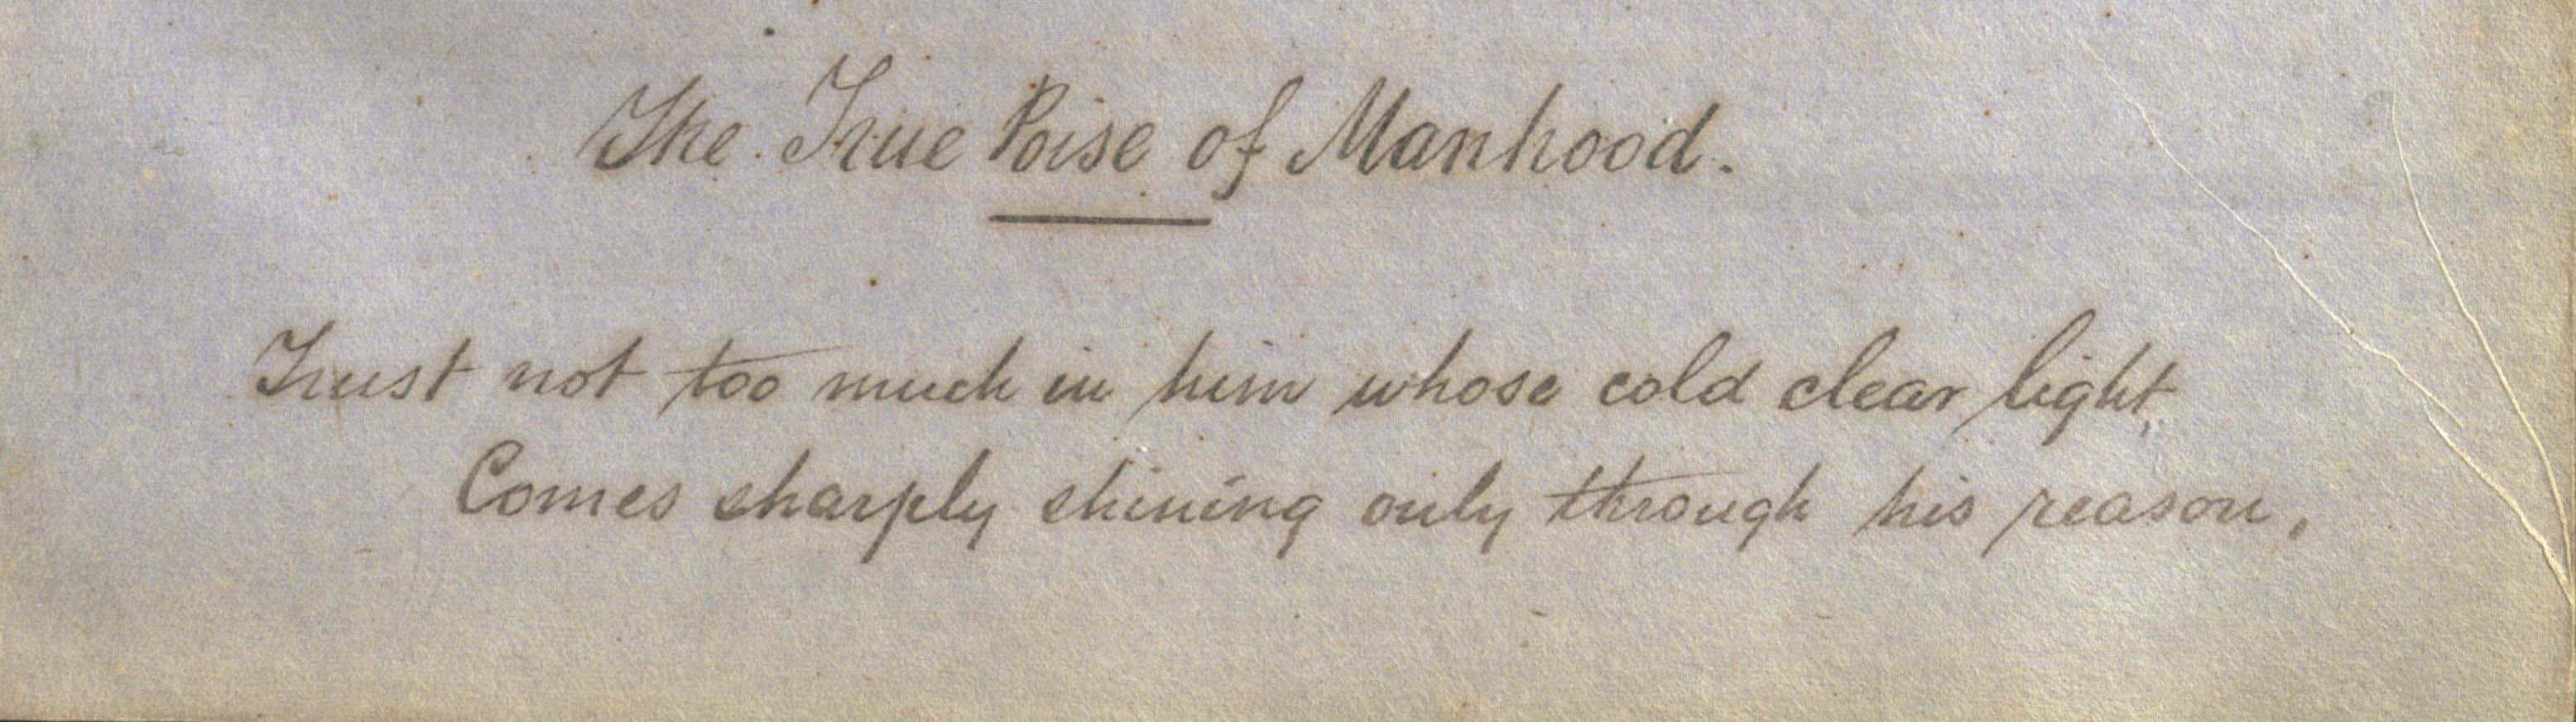 The True Poise of Manhood.
Trust not too much in him whose cold clear light,
Comes sharply shining only through his reason,